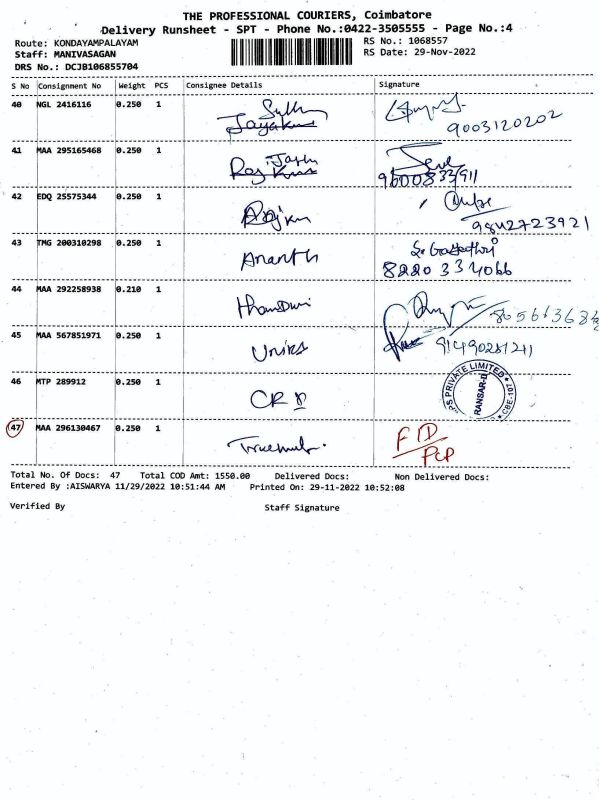 THE PROFESSIONAL COURIERS, Coimbatore
Delivery Runsheet - SPT - Phone No.:0422-3505555 - Page No.:4
Route: KONDAYAMPALAYAM RS No.: 1068557
Staff: MANIVASAGAN RS Date: 29-Nov-2022
DRS No.: DCJB106855704
S No Consignment No Weight PCS Consignee Details Signature
40 NGL 2416116 0.250 1
9003120202
41 MAA 295165468 0.250 1
9600833911
42 EDQ 25575344 0.250 1
9842723921
43 TMG 200310298 0.250 1 Ananth
8220334066
44 MAA 292258938 0.210 1
45 MAA 567851971 0.250 1
46 MTP 289912 0.250 1
PRIVATE LIMITED
47 MAA 296130467 0.250 1
Total No. Of Docs: 47 Total COD Amt: 1550.00 Delivered Docs: Non Delivered Docs:
Entered By :AISWARYA 11/29/2022 10:51:44 AM Printed On: 29-11-2022 10:52:08
Verified By Staff Signature